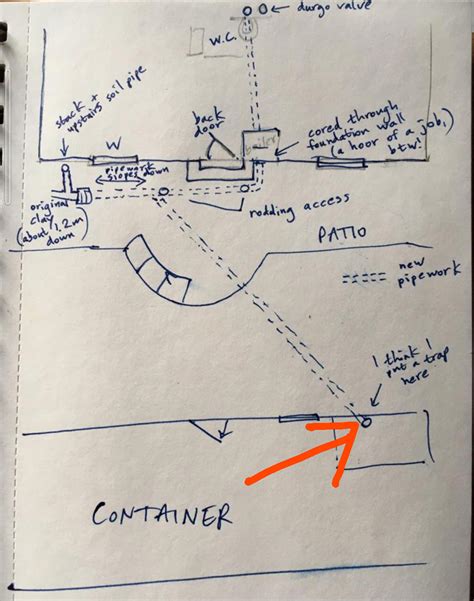 durgo valve
W.C.
stack +
upstairs soil pipe
back
door
boiler
cored through
foundation wall
(a hoor of a job,
btw!
W
pipework
slopes down
original
clay
(about 1.2m
down)
rodding access
PATIO
new
pipework
I think I
put a trap
here
CONTAINER